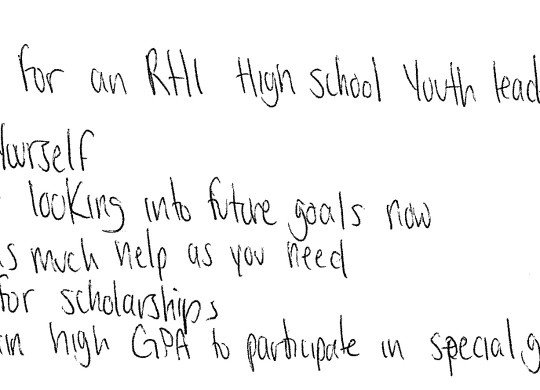 for an RHI High school Youth lead
Yourself
looking into future goals now
as much help as you need
for scholarships
high GPA to participate in special